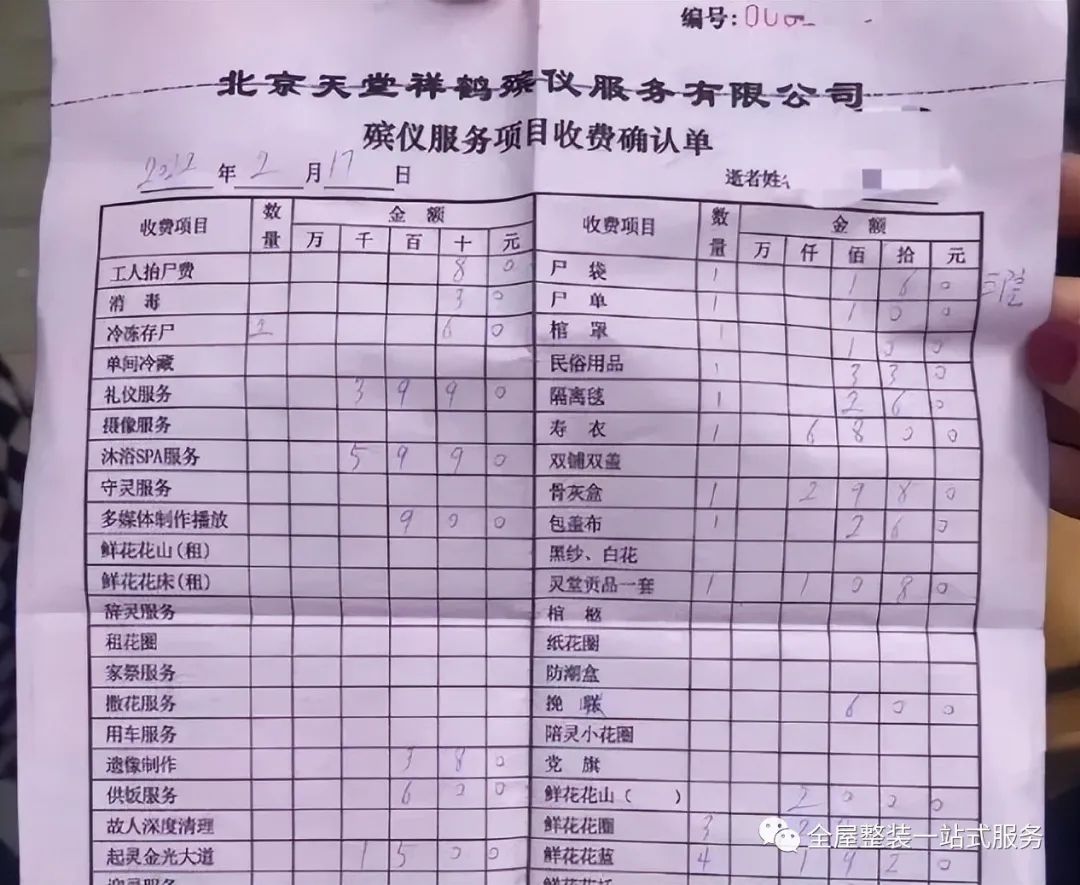 编号:
北京天堂祥鹤殡仪服务有限公司
殡仪服务项目收费确认单
2022年2月17日 逝者姓
收费项目 数量 金额 收费项目 数量 金额
万 千 百 十 元 万 仟 佰 拾 元
工人抬尸费 8 0 尸袋 1 1 6 0
消毒 3 0 尸单 1 1 0 0
冷冻存尸 6 0 棺罩 1 1 0 0
单间冷藏 民俗用品 1 3 3 0
礼仪服务 3 9 9 0 隔离毯 1 2 6 0
摄像服务 寿衣 1 6 8 0 0
沐浴SPA服务 5 9 9 0 双铺双盖
守灵服务 骨灰盒 1 2 9 8 0
多媒体制作播放 9 0 0 包盖布 1 2 6 0
鲜花花山(租) 黑纱、白花
鲜花花床(租) 灵堂贡品一套 1 1 0 8 0
辞灵服务 棺柩
租花圈 纸花圈
家祭服务 防潮盒
撒花服务 挽联 6 0 0
用车服务 陪灵小花圈
遗像制作 3 8 0 党旗
供饭服务 6 0 0 鲜花花山( ) 2 0 0 0
故人深度清理 鲜花花圈 3 2
起灵金光大道 1 5 0 0 鲜花花蓝 4 1 9 2 0
迎灵服务
全屋整装一站式服务